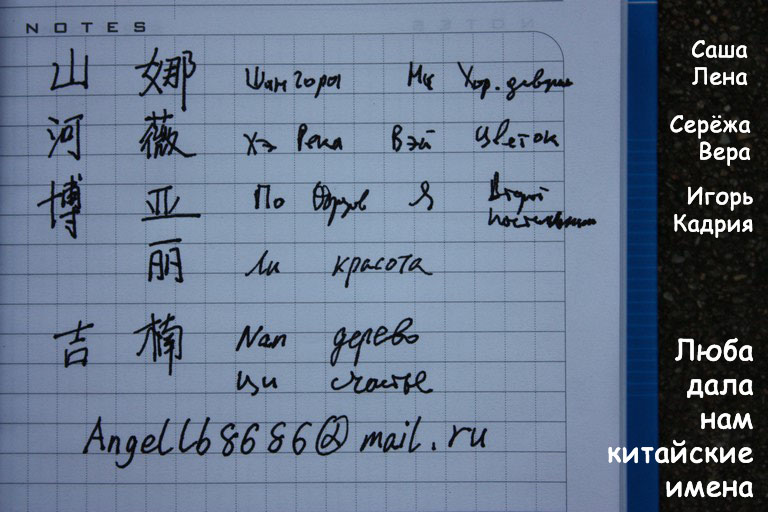 NOTES
山 娜 Шан горы На Хор.
河 薇 Хэ Река Вэй Цветок
博 亚 По Я Второй
丽 Ли красота
吉 楠 Nan дерево
Ци счастье
Angell68686@mail.ru
Саша
Лена
Серёжа
Вера
Игорь
Кадрия
Люба
дала
нам
китайские
имена